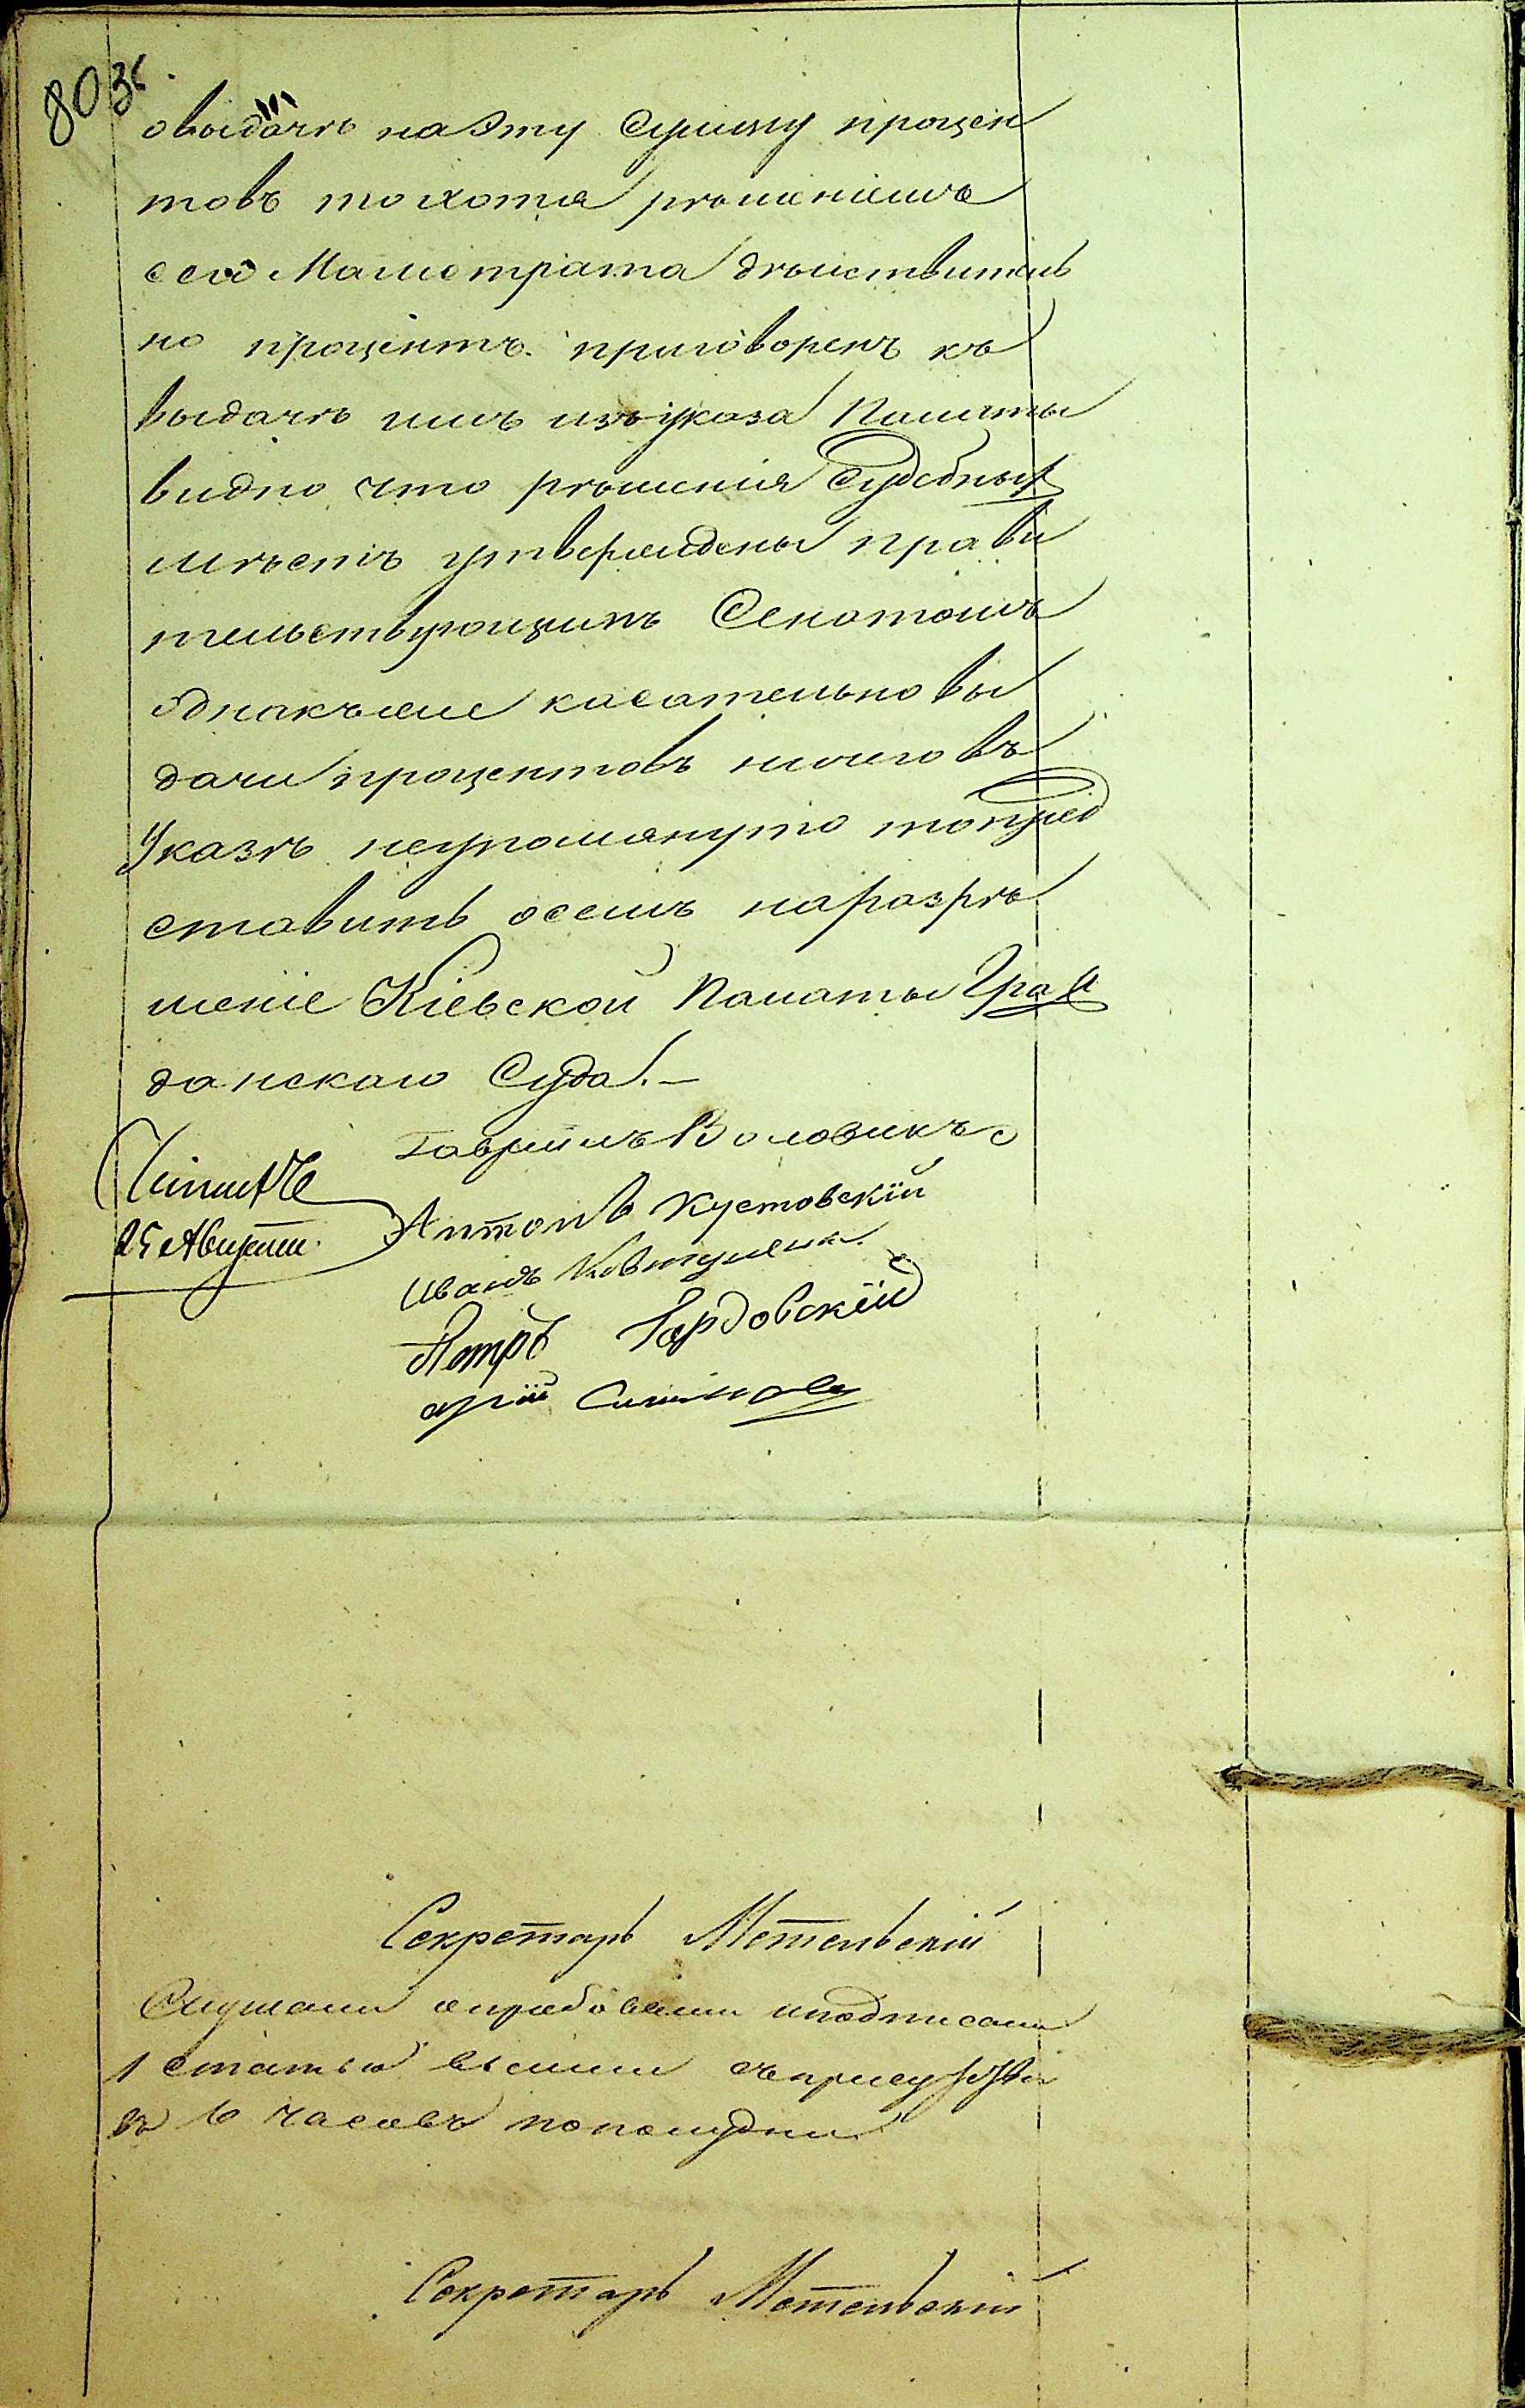 803б.
овыдачѣ наЭту Сумму процен
товъ то хотя рѣшеніемъ
сего Магистрата дѣйствитель
но процентъ приговоренъ къ
выдачѣ имъ изъ указа Палаты
видно что рѣшенія Судебныхъ
мѣстъ утверждены прави
тельствующимъ Сенатомъ
однакъже касательно вы
дачи процентовъ ничего въ
Указѣ неупомянуто топред
ставить осемъ наразрѣ
шеніе Кіевской Палаты Граж
данскаго Суда.—
Гаврiилъ Воловикъ
Антонъ Кустовскій
25 Августа
Иванъ
Петръ
Секретарь Метельскій
Слушали апробовали иподписали
1 статью вышли съприсутствія
въ 6 часовъ пополудни
Секретарь Метельскій